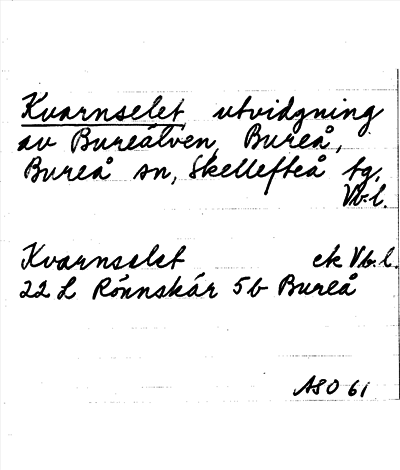 Kvarnselet utvidgning
av Bureälven, Bureå,
Bureå sn, Skellefteå tg,
Vb.l.
Kvarnselet ek Vb.l.
22 L Rönnskär 5b Bureå
ASO 61